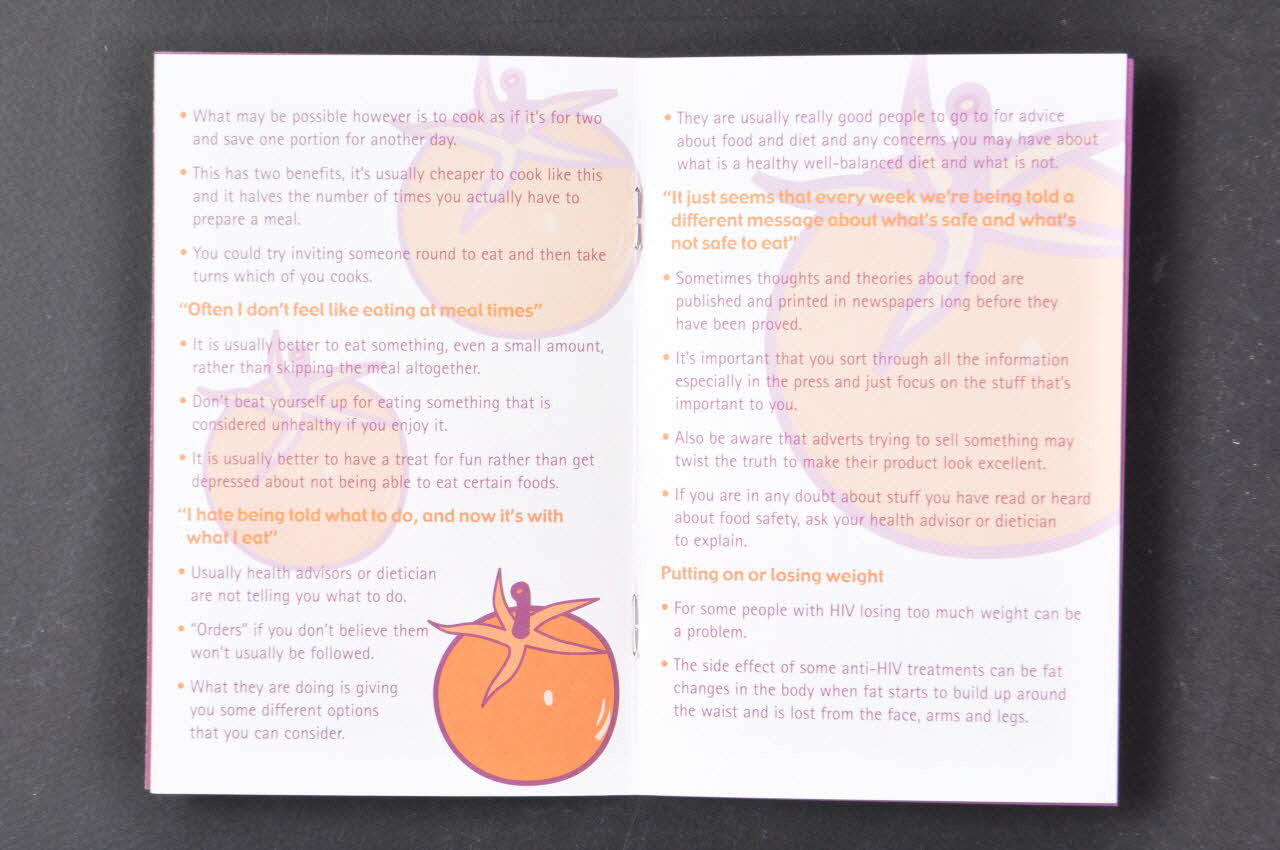 • What may be possible however is to cook as if it's for two
and save one portion for another day.
• This has two benefits, it's usually cheaper to cook like this
and it halves the number of times you actually have to
prepare a meal.
• You could try inviting someone round to eat and then take
turns which of you cooks.
"Often I don't feel like eating at meal times"
• It is usually better to eat something, even a small amount,
rather than skipping the meal altogether.
• Don't beat yourself up for eating something that is
considered unhealthy if you enjoy it.
• It is usually better to have a treat for fun rather than get
depressed about not being able to eat certain foods.
"I hate being told what to do, and now it's with
what I eat"
• Usually health advisors or dietician
are not telling you what to do.
• "Orders" if you don't believe them
won't usually be followed.
• What they are doing is giving
you some different options
that you can consider.
• They are usually really good people to go to for advice
about food and diet and any concerns you may have about
what is a healthy well-balanced diet and what is not.
"It just seems that every week we're being told a
different message about what's safe and what's
not safe to eat"
• Sometimes thoughts and theories about food are
published and printed in newspapers long before they
have been proved.
• It's important that you sort through all the information
especially in the press and just focus on the stuff that's
important to you.
• Also be aware that adverts trying to sell something may
twist the truth to make their product look excellent.
• If you are in any doubt about stuff you have read or heard
about food safety, ask your health advisor or dietician
to explain.
Putting on or losing weight
• For some people with HIV losing too much weight can be
a problem.
• The side effect of some anti-HIV treatments can be fat
changes in the body when fat starts to build up around
the waist and is lost from the face, arms and legs.